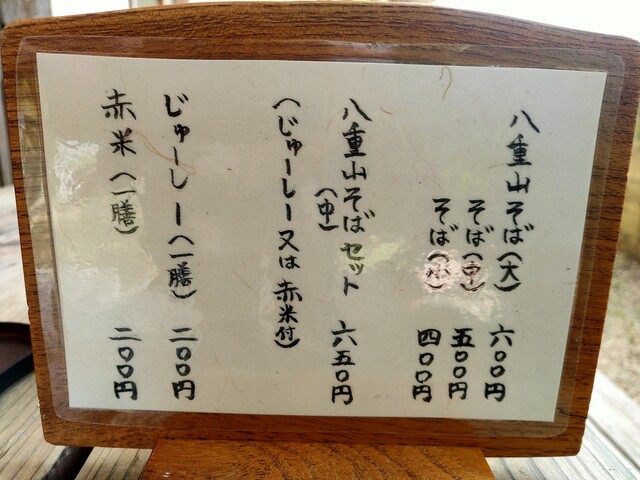 八重山そば(大) 六〇〇円
そば(中) 五〇〇円
そば(小) 四〇〇円
八重山そばセット 六五〇円
(中)
(じゅーしー又は赤米付)
じゅーしー(一膳) 二〇〇円
赤米(一膳) 二〇〇円